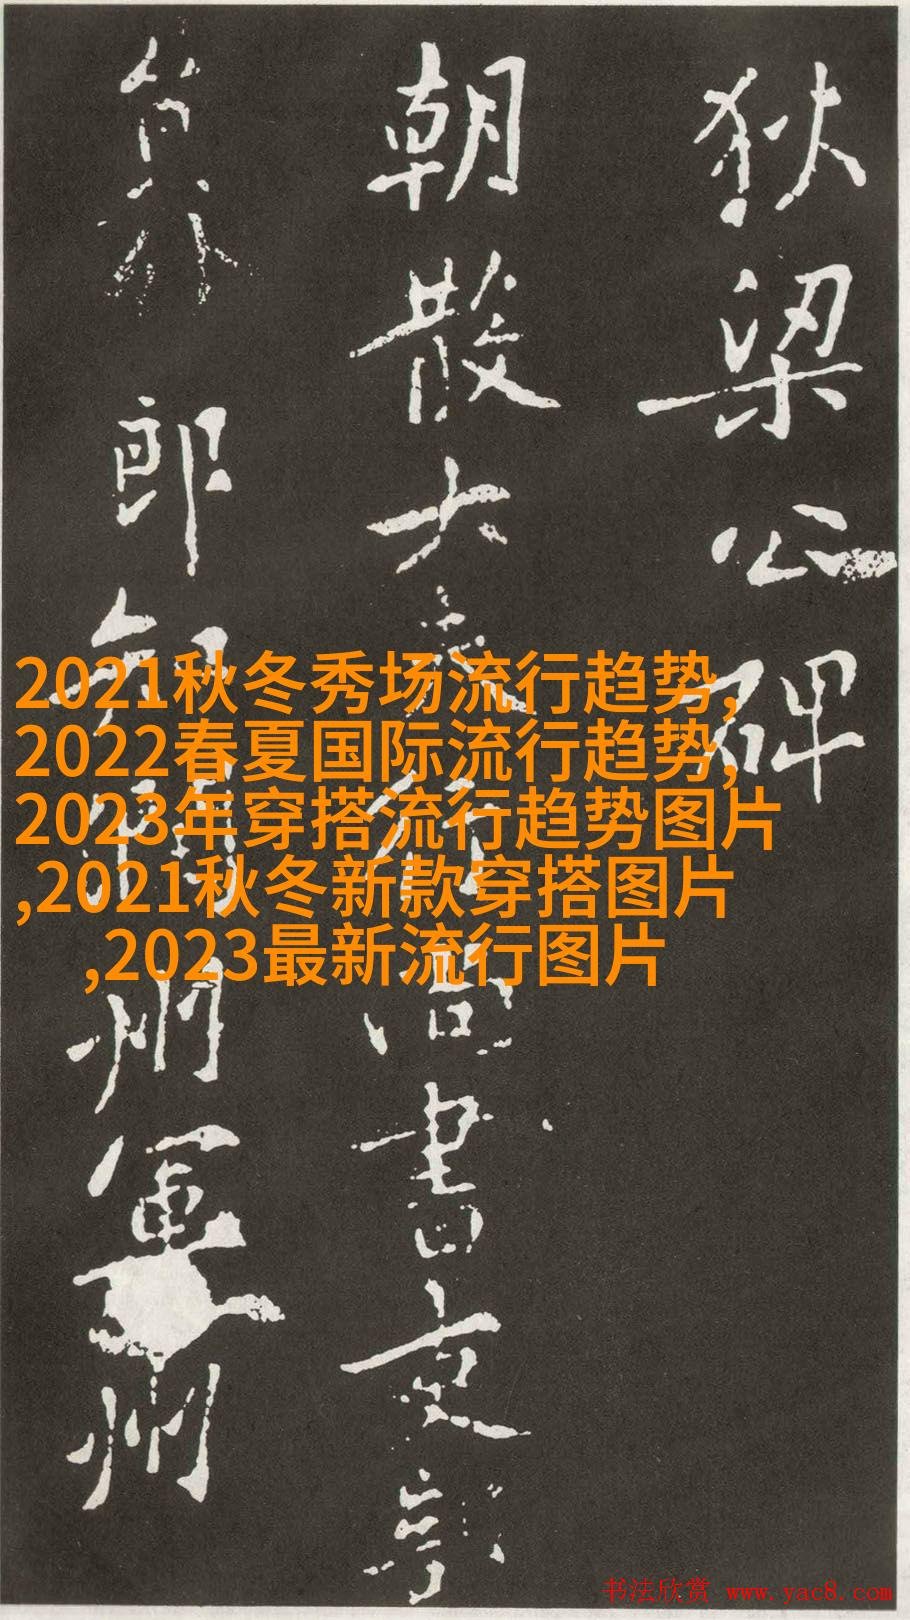 狄梁公碑
朝散大夫行尚書吏部
員外郎知潤州軍州
2021秋冬秀场流行趋势,
2022春夏国际流行趋势,
2023年穿搭流行趋势图片
,2021秋冬新款穿搭图片
,2023最新流行图片
书法欣赏 www.yac8.com